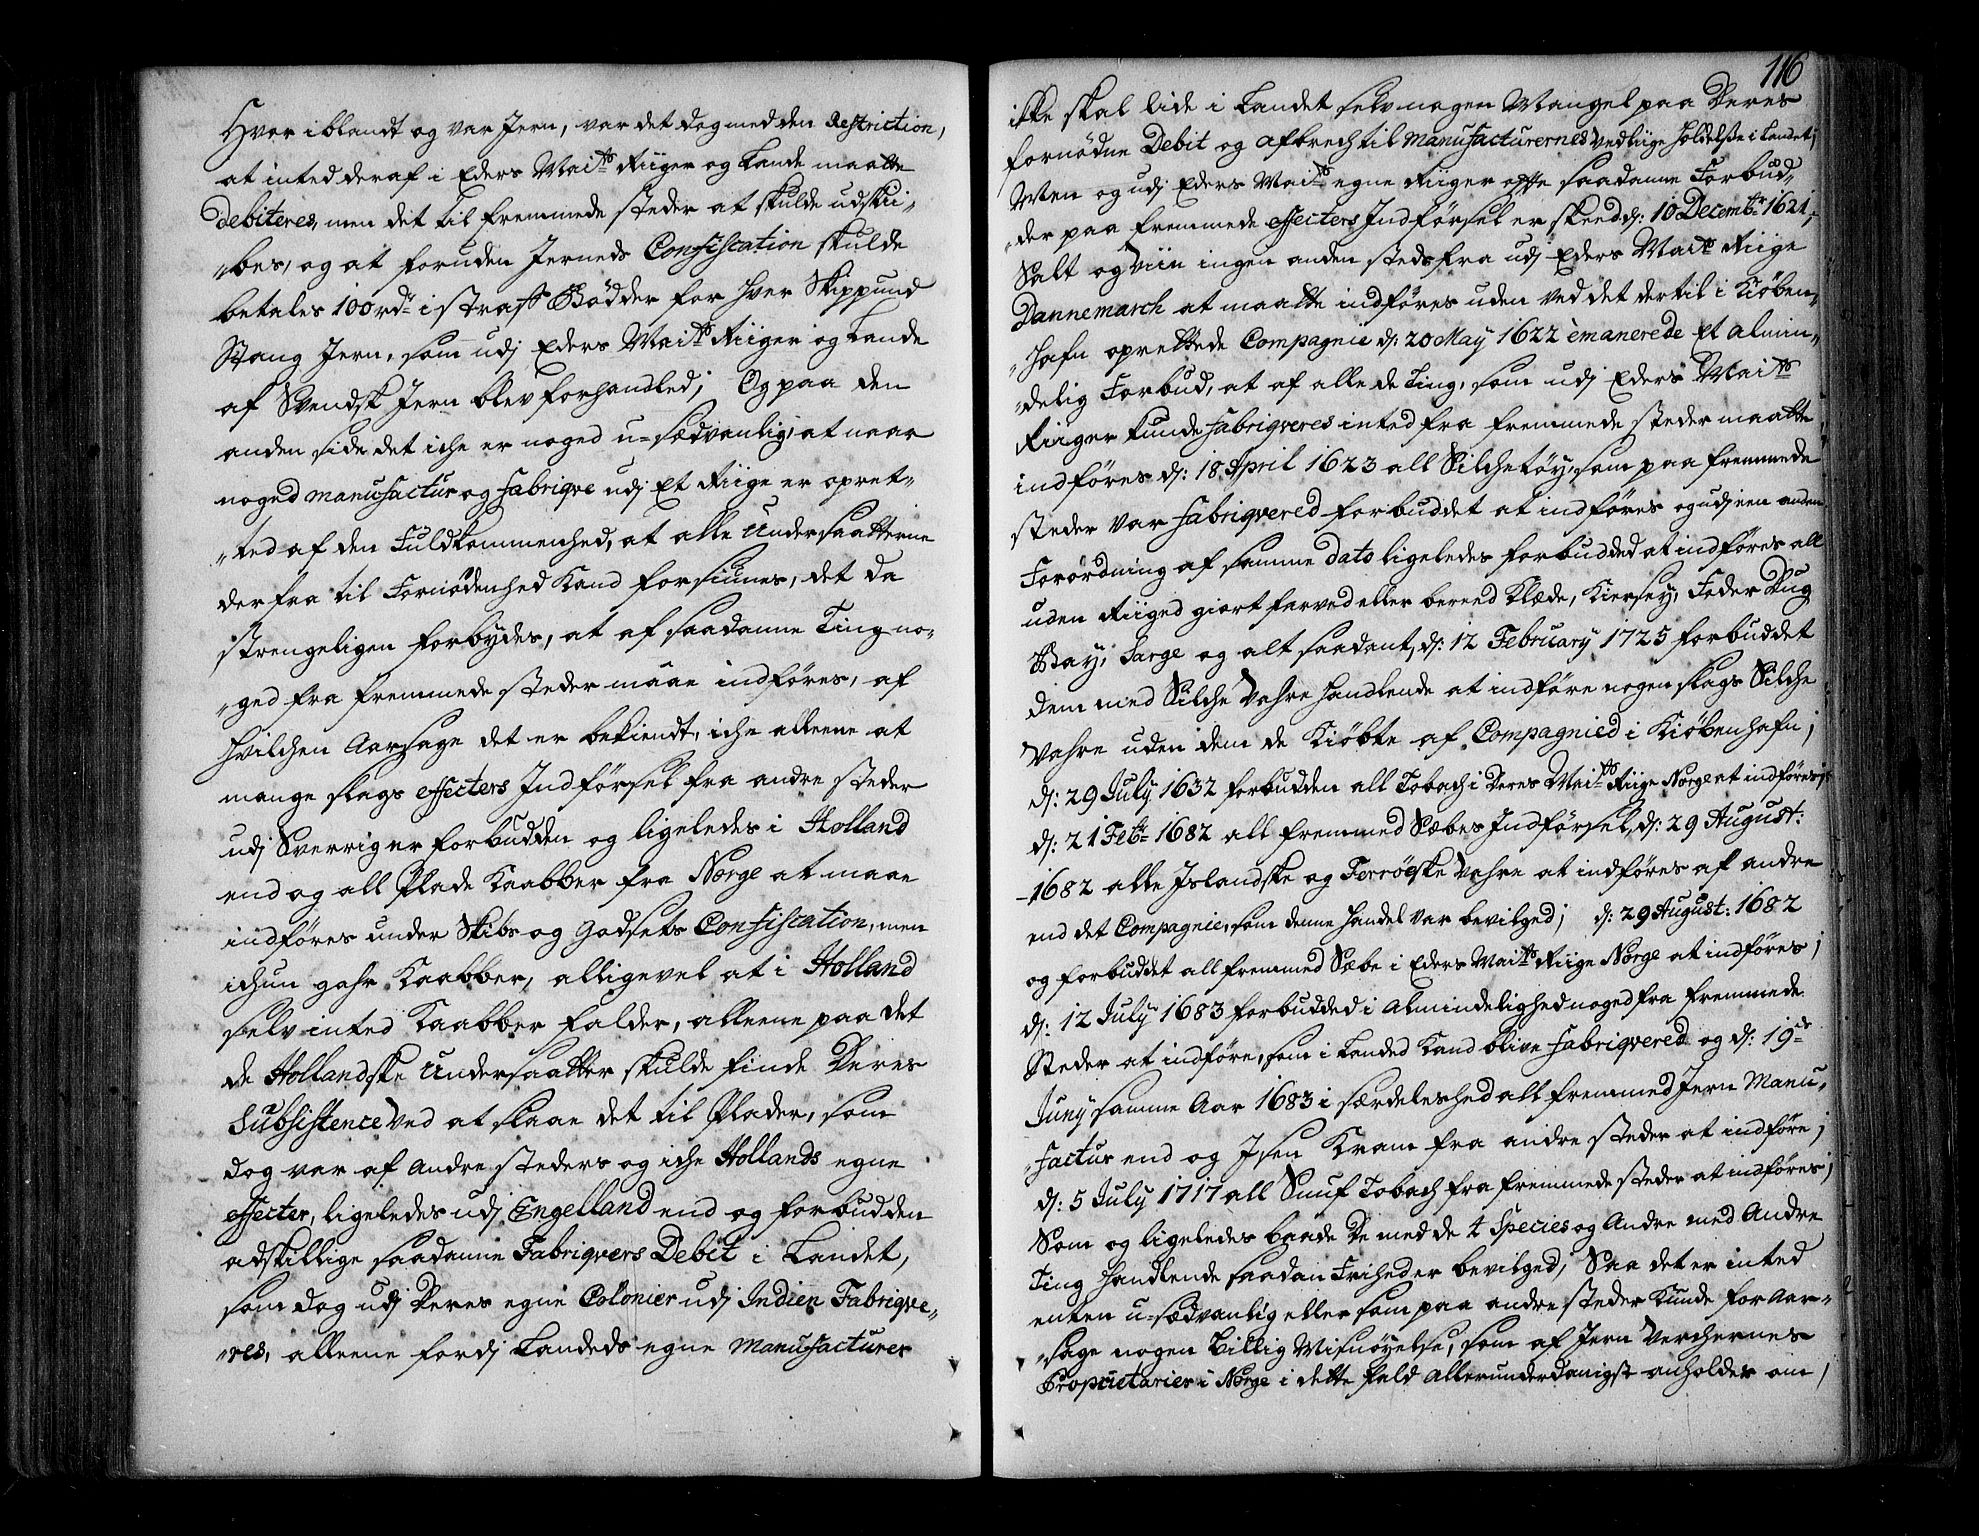 Hvor iblandt og var Jern, var det dog med den Restriction,
at inted deraf i Eders Maits Riiger og Lande maatte
Debiteres, men det til fremmede steder at skulde udskii-
„bes, og at foruden Jerneds Confiscation skulde
betales 100 rd i straff Bødder for hver Skippund
Stang Jern, som udj Eders Maits Riiger og Lande
af Svendsk Jern blev forhandled; Og paa den
anden side det iche er noged u-sædvanlig, at naar
noged manufactur og fabriqve udj Et Riige er opret-
„ted af den Fuldkommenhed, at alle Undersaatterne
derfra til Fornødenhed kand forsiunes, det da
strengeligen forbydes, at af saadanne Ting no-
„ged fra fremmede steder maae indføres, af
hvilchen Aarsage det er bekiendt, iche alleene at
mange slags effecters Indførsel fra andre steder
udj Sverrig er forbudden og ligeledes i Holland
end og all Plade Kaabber fra Norge at maae
indføres under Skibs og Godsets Confiscation, men
ichun gahr Kaabber, alligevel at i Holland
selv inted Kaabber falder, alleene paa det
de Hollandske Undersaatter skulde finde Deres
Subsistence ved at slaae det til Plader, som
dog var af Andre steders og iche Hollands egne
effecter, ligeledes udj Engelland end og forbudden
adskillige saadanne Fabriqvers Debit i Landet,
som dog udj Deres egne Colonier udj Indien Fabriqve-
„res, alleene fordj Landeds egne Manufacturer
116
ikke skal lide i Landet selv nogen Mangel paa Deres
fornødne Debit og afbrech til Manufacturernes vedliige holdelse i Landet;
Men og udj Eders Maits egne Riiger ofte saadanne Forbud-
„der paa fremmede effecters Indførsel er skeed d: 10 Decembr 1621,
Salt og Viin ingen anden steds fra udj Eders Maits Riige
Dannemarch at maatte indføres uden ved det dertil i Kiøben-
„hafn oprettede Compagnie d: 20 May 1622 emanerede Et almin-
„delig Forbud, at af alle de Ting, som udj Eders Maits
Riiger kunde fabriqveres inted fra fremmede steder maatte
indføres d: 18 April 1623 all Silchetøy, som paa fremmede
steder var fabriqvered forbuddet at indføres og udj een anden
Forordning af samme dato ligeledes forbudded at indføres all
uden Riiged giort farved eller bereed Klæde, Kiersey, Feder Dug
Bay, Sarge og alt saadant, d: 12 February 1725 forbuddet
dem med Silche Vahre handlende at indføre nogen slags Silche
Vahre uden dem de Kiøbte af Compagnied i Kiøbenhafn;
d: 29 July 1632 forbudden all Tobach i Deres Maits Riige Norge at indføres;
d: 21 Febr 1682 all fremmed Sæbes Indførsel, d: 29 August:
1682 alle Islandske og Ferröeske Vahre at indføres af andre
end det Compagnie, som denne Handel var bevilged; d: 29 August: 1682
og forbuddet all fremmed Sæbe i Eders Maits Riige Norge at indføres;
d: 12 July 1683 forbudded i Almindelighed noged fra fremmede
Steder at indføre, som i Landed kand blive fabriqvered og d: 19de
Juny samme Aar 1683 i særdeleshed all fremmed Jern Manu-
„factur end og Isen Kram fra andre steder at indføre;
d: 5 July 1717 all Snuf Tobach fra fremmede steder at indføres;
Som og ligeledes baade De med de 4 Species og Andre med Andre
Ting handlende saadan Friheder bevilged, Saa det er inted
enten u-sædvanlig eller som paa andre steder kunde for Aar-
„sage nogen billig Misnøyelse, som af Jern Verchernes
Proprietarier i Norge i dette fald Allerunderdanigst anholdes om,